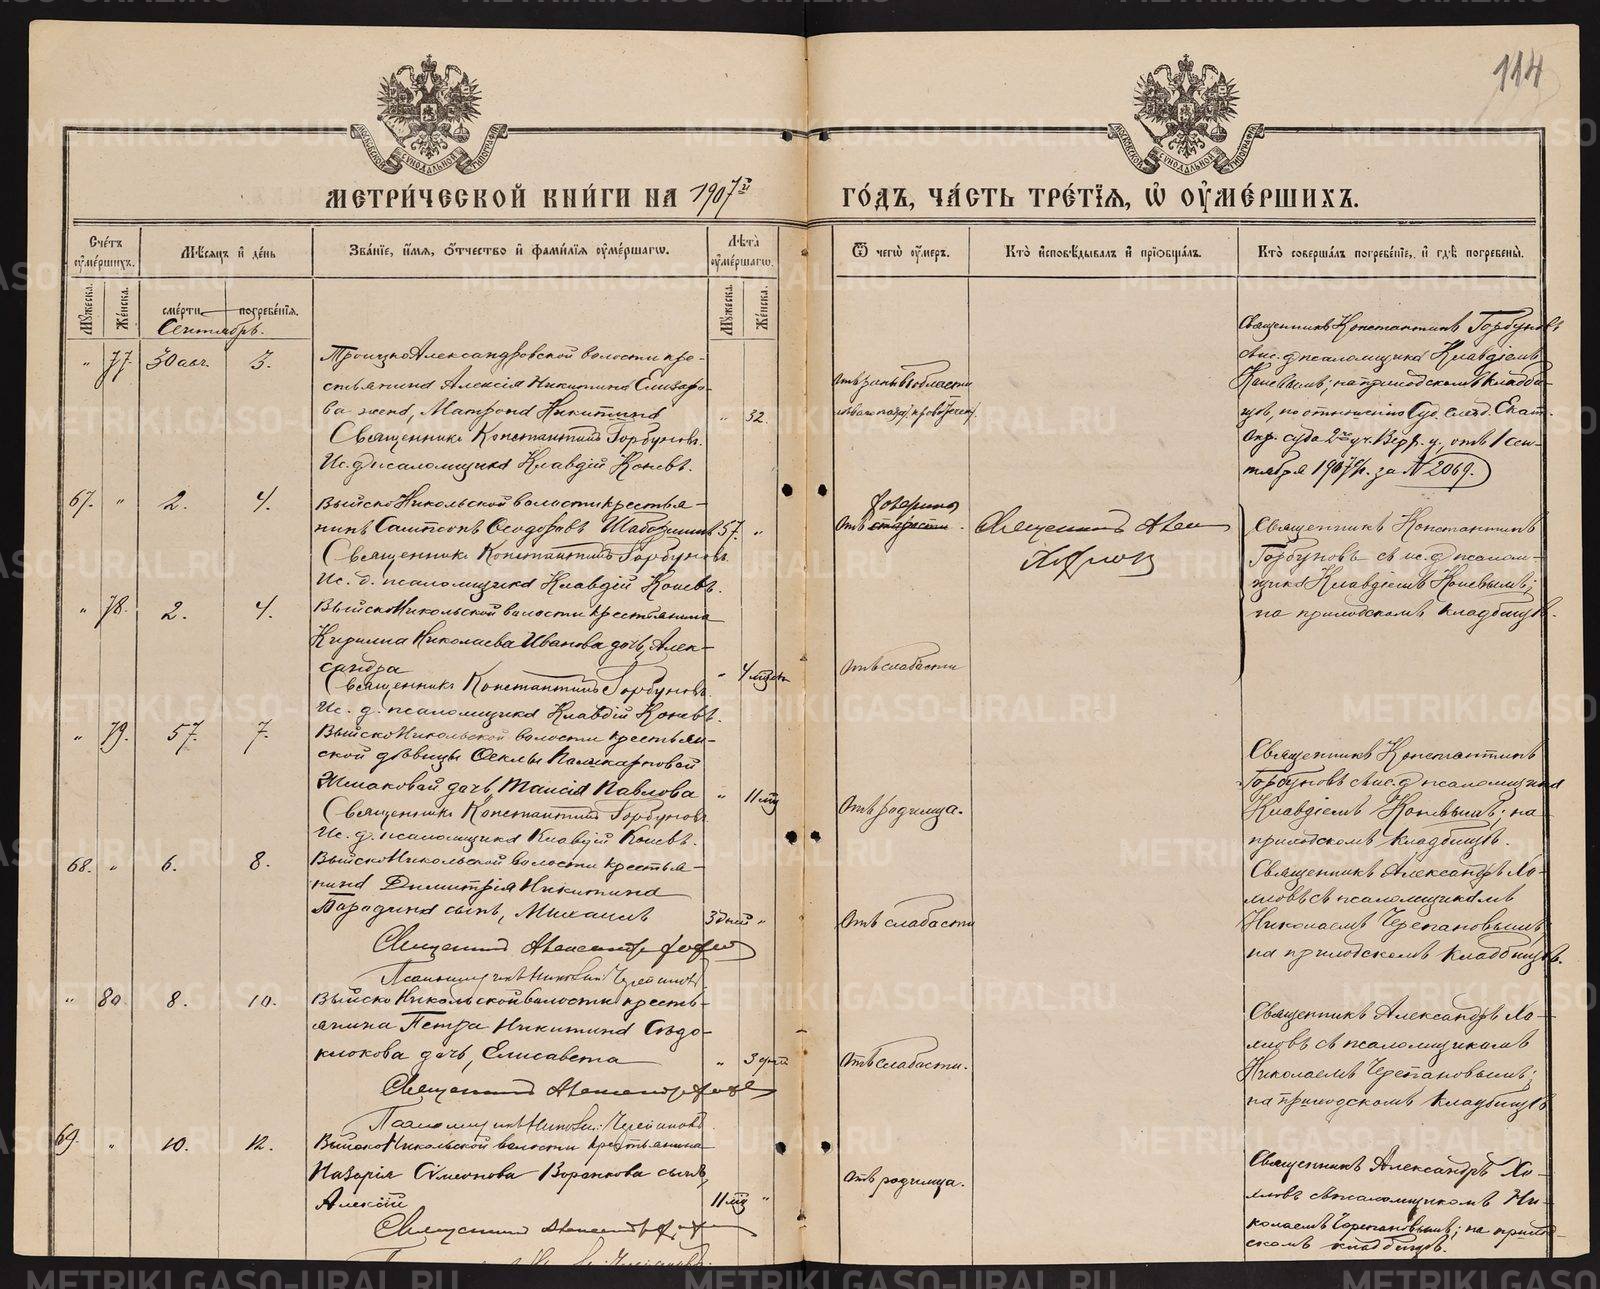 114
МЕТРИ́ЧЕСКОЙ КНИ́ГИ НА 1907й ГО́ДЪ, ЧА́СТЬ ТРЕ́ТЇѦ, Ѡ҆ ОУ҆МЕ́РШИХЪ.
Сче́тъ оу҆ме́ршихъ.
Мѣ́сѧцъ и҆ де́нь
Зва́нїе, и҆́мѧ, ѻ҆́тчество и҆ фами́лїѧ оу҆ме́ршагѡ.
Лѣ́та оу҆ме́ршагѡ.
Ѿ чегѡ̀ оу҆́меръ.
Кто̀ и҆сповѣ́дывалъ и҆ прїѡбща́лъ.
Кто̀ соверша́лъ погребе́нїе, и҆ гдѣ̀ погребены̀.
Мꙋ́жеска.
Же́нска.
сме́рти
погребе́нїѧ.
Мꙋ́жеска.
Же́нска.
Сентябрь.
" 77. 30 авг. 3.
Троицко Александровской волости кре-
стьянина Алексія Никитина Елизаро-
ва жена, Матрона Никитина " 32.
Священникъ Константинъ Горбуновъ.
Ис. д. псаломщика Клавдій Коневъ.
Священникъ Константинъ Горбуновъ
съ ис. д. псаломщика Клавдіемъ
Коневымъ; на приходскомъ кладби-
щѣ, по отношенію Суд. слѣд. Екат.
Окр. суда 2го уч. Верх. у., отъ 1 сен-
тября 1907 г. за № 2069.
67. " 2. 4.
Выйско Никольской волости крестья-
нинъ Сампсонъ Ѳеодоровъ 57. "
Священникъ Константинъ Горбуновъ
Ис. д. псаломщика Клавдій Коневъ.
Отъ старости.
Священникъ Алек
Священникъ Константинъ
Горбуновъ съ ис. д. псалом-
щика Клавдіемъ Коневымъ;
на приходскомъ кладбищѣ.
" 78. 2. 4.
Выйско Никольской волости крестьянина
Кирилла Николаева Иванова дочь, Алек-
сандра " 4 мцвъ
Священникъ Константинъ Горбуновъ.
Ис. д. псаломщика Клавдій Коневъ.
Отъ слабости
" 79. 5. 7.
Выйско Никольской волости крестьян-
ской дѣвицы Ѳеклы Поликарповой
дочь, Таисія Павлова " 11 мц
Священникъ Константинъ Горбуновъ
Ис. д. псаломщика Клавдій Коневъ.
Отъ родимца.
Священникъ Константинъ
Горбуновъ съ ис. д. псаломщика
Клавдіемъ Коневымъ; на
приходскомъ кладбищѣ.
68. " 6. 8.
Выйско Никольской волости крестья-
нина Димитрія Никитина
сынъ, Михаилъ 3 дней "
Священникъ Александръ Хохловъ
Псаломщикъ Николай Черепановъ
Отъ слабости
Священникъ Александръ Хо-
хловъ съ псаломщикомъ
Николаемъ Черепановымъ;
на приходскомъ кладбищѣ.
" 80. 8. 10.
Выйско Никольской волости кресть-
янина Петра Никитина Сѣдо-
клокова дочь, Елисавета " 3 дней
Священникъ Александръ Хохловъ
Псаломщикъ Николай Черепановъ
Отъ слабости.
Священникъ Александръ Хо-
хловъ съ псаломщикомъ
Николаемъ Черепановымъ;
на приходскомъ кладбищѣ
69. " 10. 12.
Выйско Никольской волости крестьянина
Назарія Сѵмеонова сынъ,
Алексій 11 мц "
Священникъ Александръ Хохловъ
Отъ родимца.
Священникъ Александръ Хо-
хловъ съ псаломщикомъ Ни-
колаемъ Черепановымъ; на приход-
скомъ кладбищѣ.
METRIKI.GASO-URAL.RU